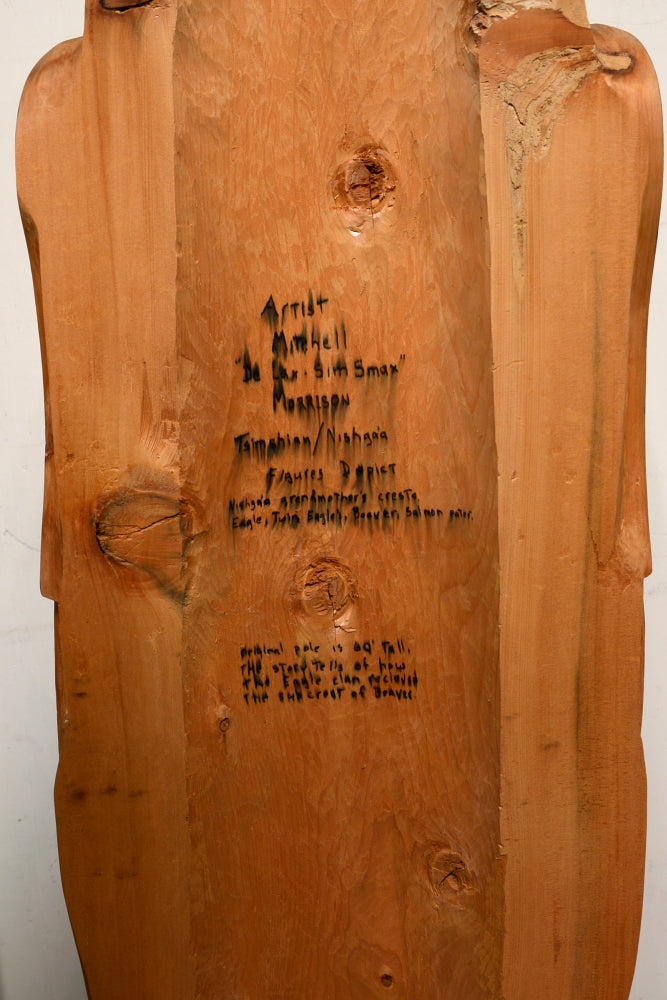 Artist
Mitchell
"De Lax. Sim Smax"
Morrison
Tsimphian/Nishga'a
Figures Depict
Nishga'a grandmother's crests.
Eagle, Twin Eaglet, Beaver, Salmon eater.
original pole is 60' Tall.
The story Tells of how
the Eagle clan recieved
the subcrest of Beaver.